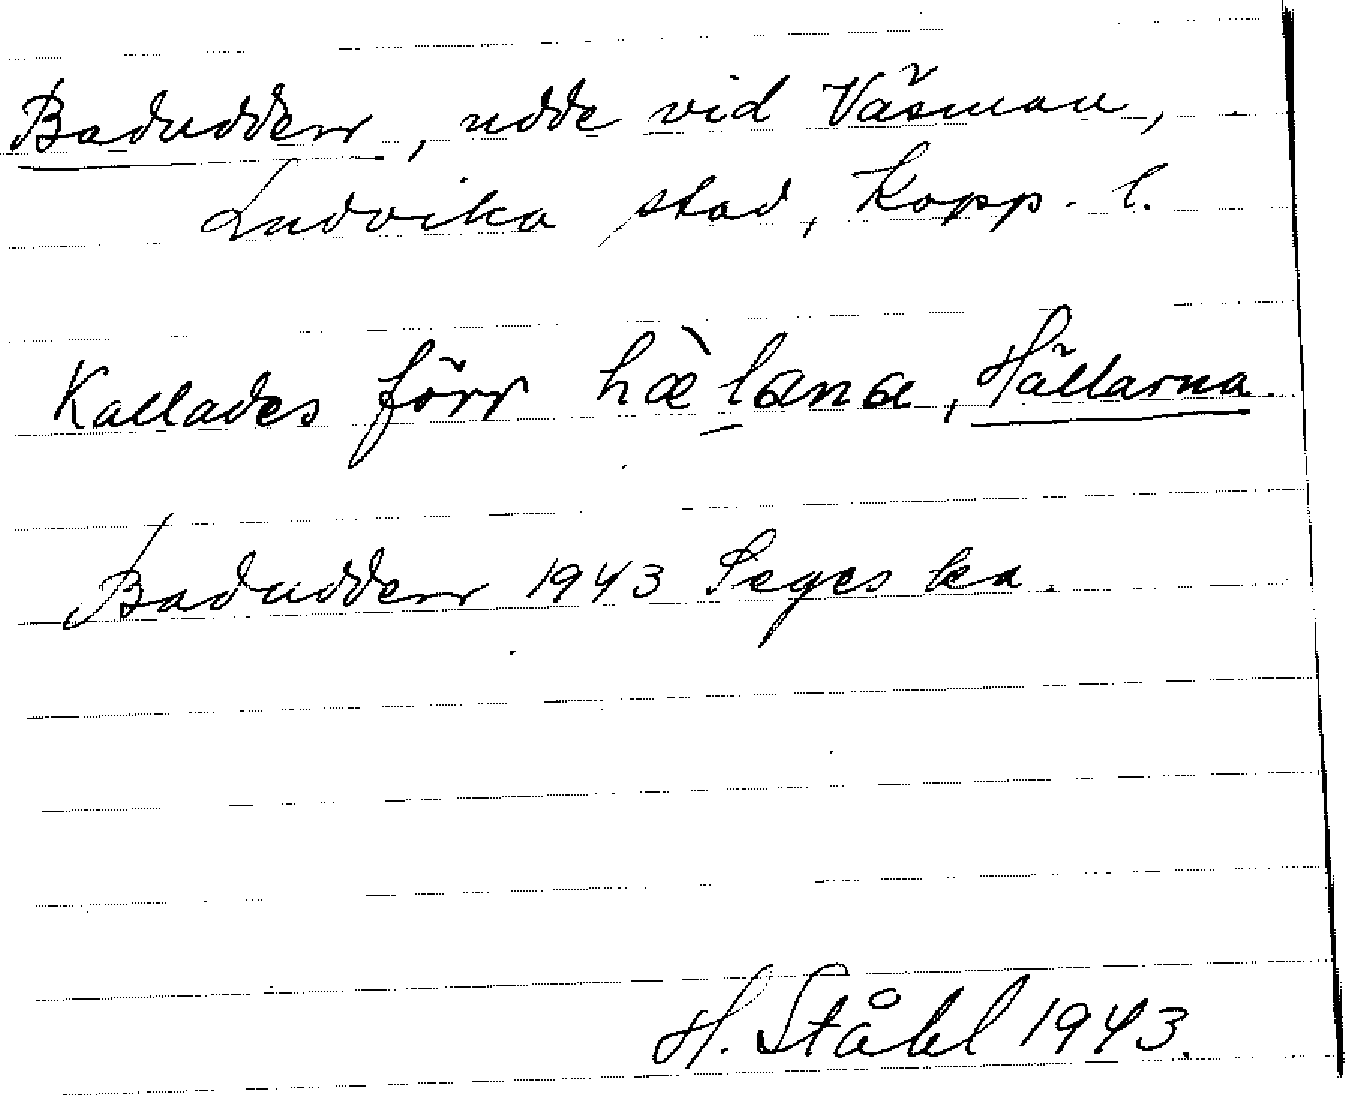 Badudden, udde vid Väsman,
Ludvika stad, Kopp. l.
Kallades förr hæ̀l̠ana, Hällarna.
Badudden 1943 Seges ka.
H. Ståhl 1943.